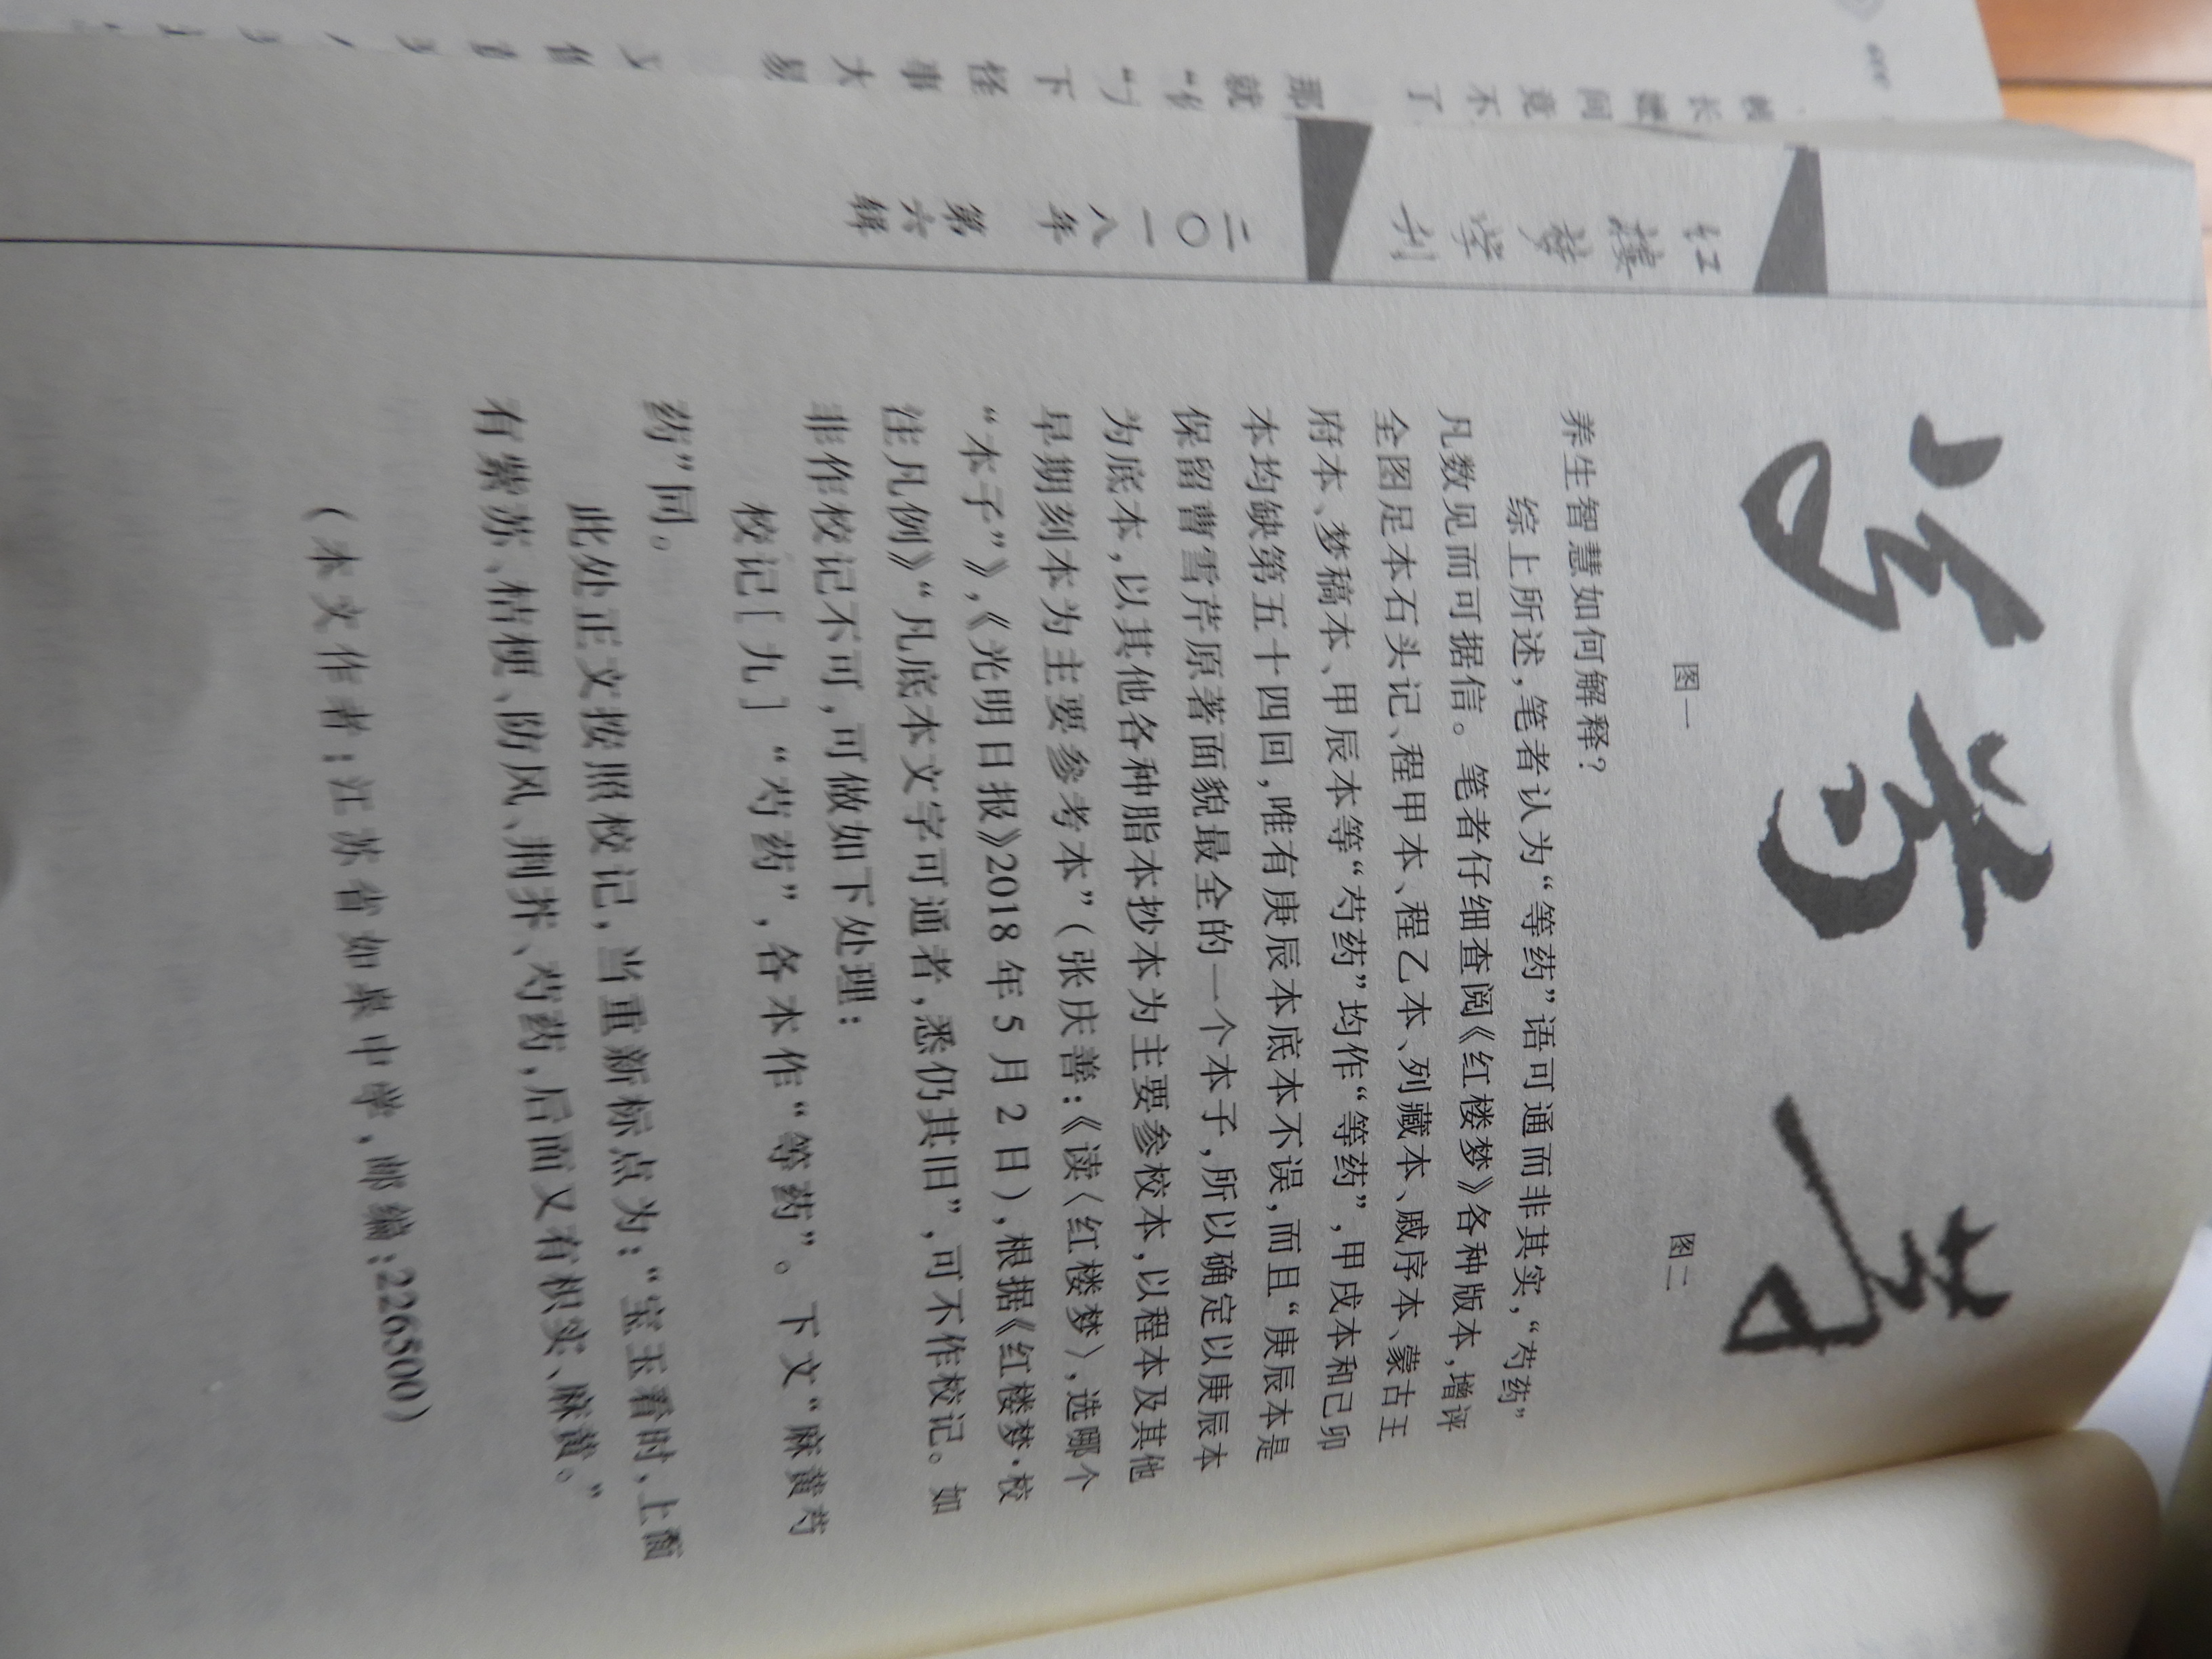 红楼梦学刊
二〇一八年 第六辑
图一
图二
养生智慧如何解释?
综上所述,笔者认为“等药”语可通而非其实,“芍药”
凡数见而可据信。笔者仔细查阅《红楼梦》各种版本,增评
全图足本石头记、程甲本、程乙本、列藏本、戚序本、蒙古王
府本、梦稿本、甲辰本等“芍药”均作“等药”,甲戌本和己卯
本均缺第五十四回,唯有庚辰本底本不误,而且“庚辰本是
保留曹雪芹原著面貌最全的一个本子,所以确定以庚辰本
为底本,以其他各种脂本抄本为主要参校本,以程本及其他
早期刻本为主要参考本”(张庆善:《读〈红楼梦〉,选哪个
“本子”》,《光明日报》2018年5月2日),根据《红楼梦·校
注凡例》“凡底本文字可通者,悉仍其旧”,可不作校记。如
非作校记不可,可做如下处理:
校记[九] “芍药”,各本作“等药”。下文“麻黄芍
药”同。
此处正文按照校记,当重新标点为:“宝玉看时,上面
有紫苏、桔梗、防风、荆芥、芍药,后面又有枳实、麻黄。”
(本文作者:江苏省如皋中学,邮编:226500)